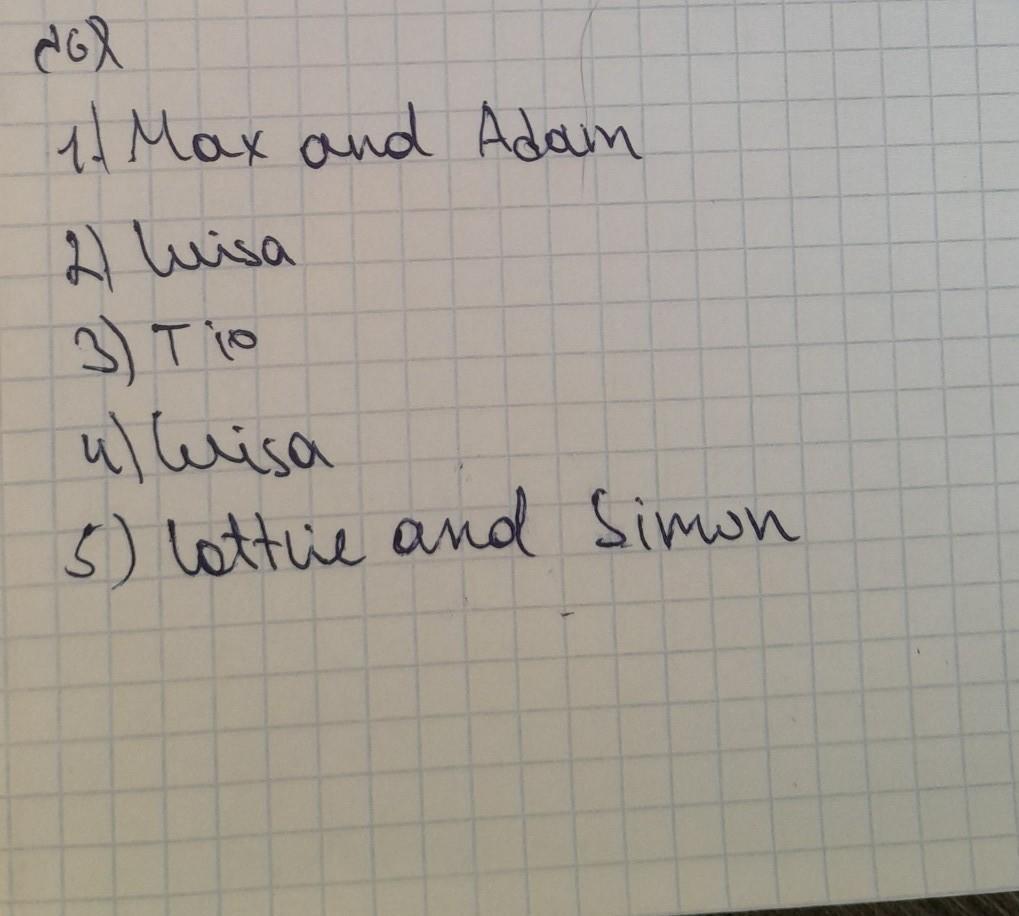 1) Max and Adam
2) Luisa
3) Tio
4) Luisa
5) Lottie and Simon